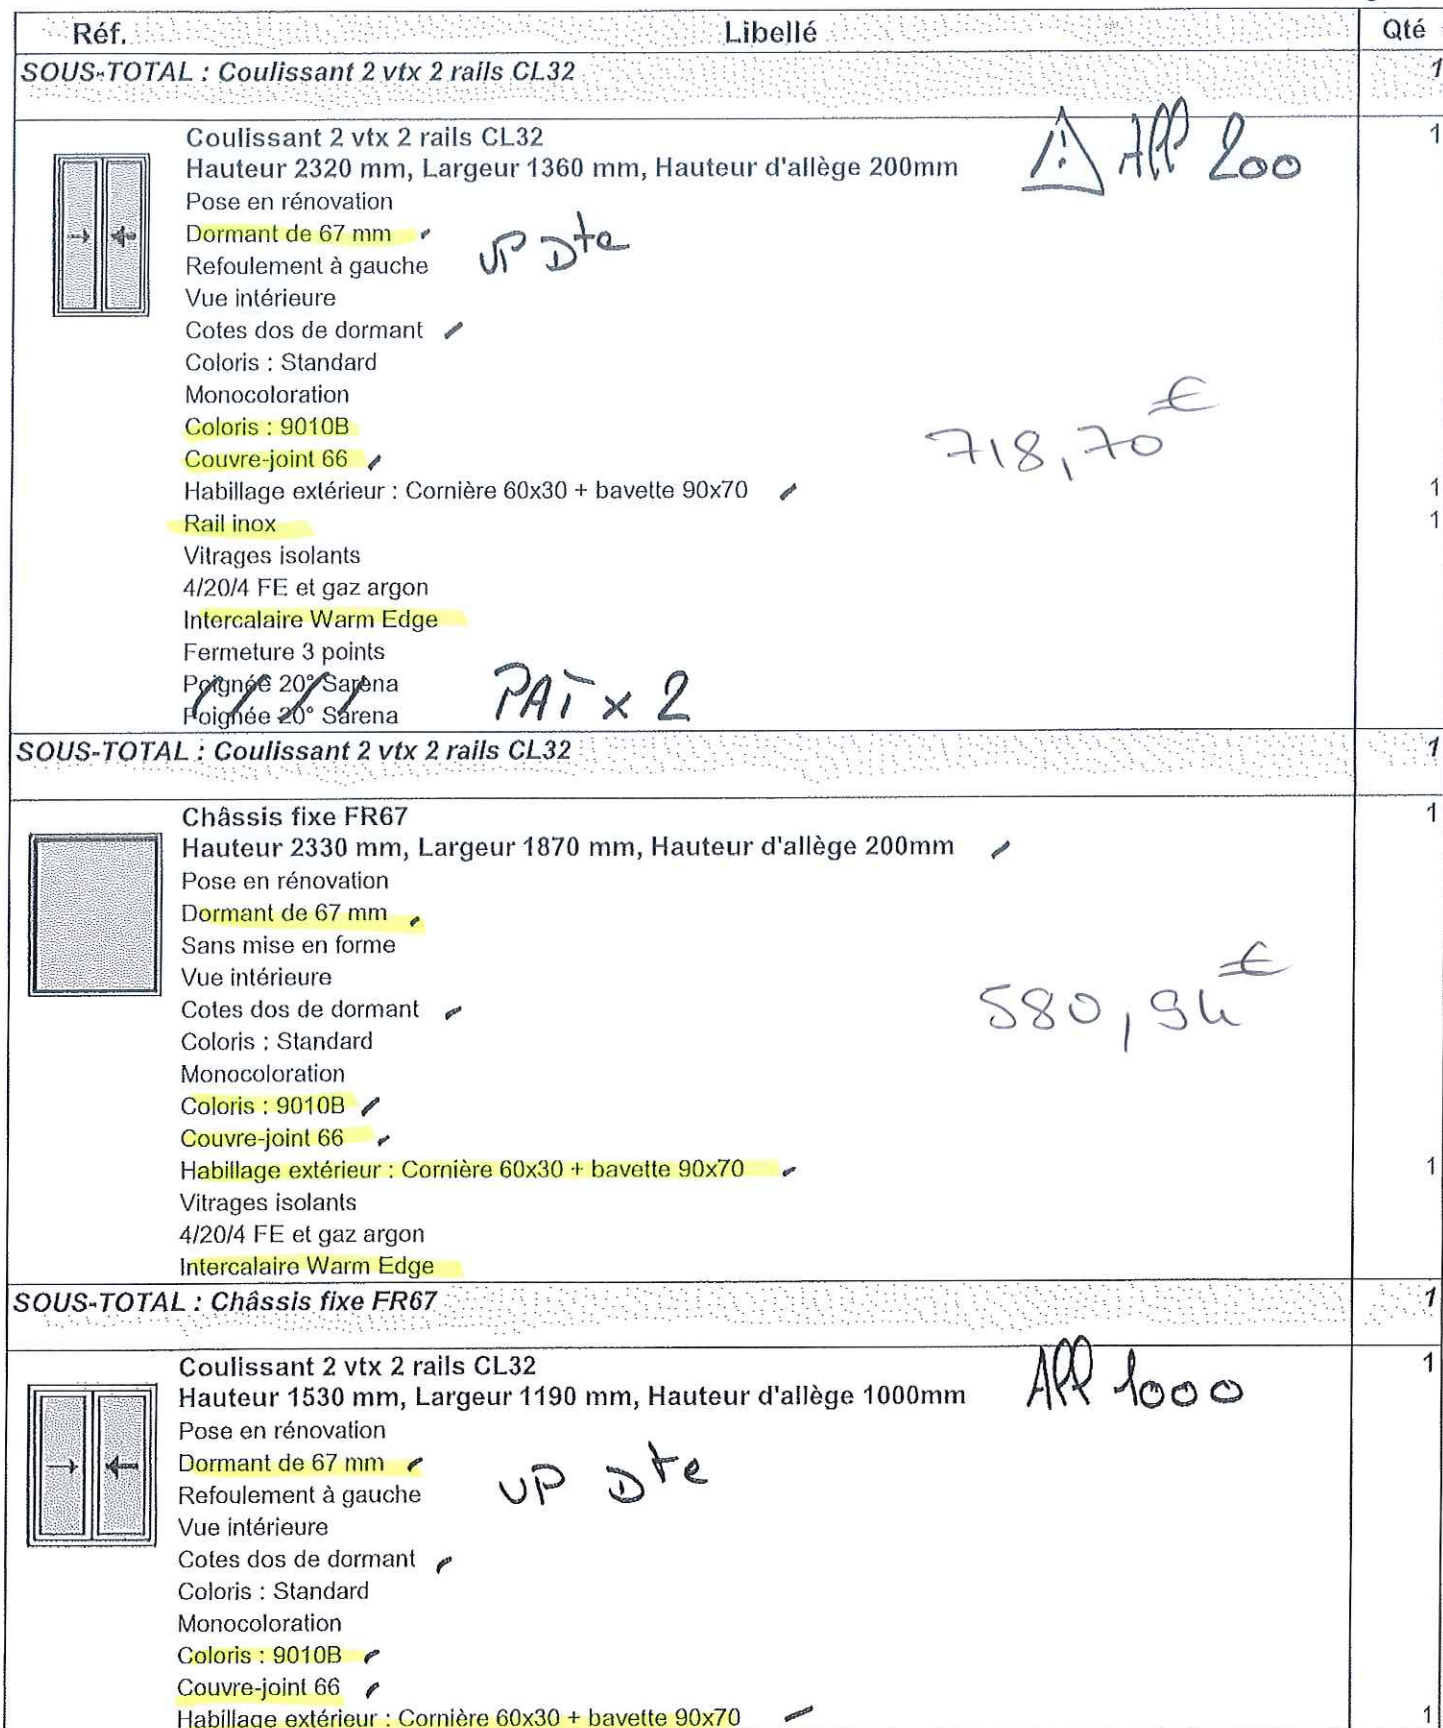 Réf. Libellé Qté
SOUS-TOTAL : Coulissant 2 vtx 2 rails CL32 1
Coulissant 2 vtx 2 rails CL32 1
Hauteur 2320 mm, Largeur 1360 mm, Hauteur d'allège 200mm
All 200
Pose en rénovation
Dormant de 67 mm
VP Dte
Refoulement à gauche
Vue intérieure
Cotes dos de dormant
Coloris : Standard
Monocoloration
Coloris : 9010B
718,70€
Couvre-joint 66
Habillage extérieur : Cornière 60x30 + bavette 90x70 1
Rail inox 1
Vitrages isolants
4/20/4 FE et gaz argon
Intercalaire Warm Edge
Fermeture 3 points
Poignée 20° Sarena
PAT x 2
Poignée 20° Sarena
SOUS-TOTAL : Coulissant 2 vtx 2 rails CL32 1
Châssis fixe FR67 1
Hauteur 2330 mm, Largeur 1870 mm, Hauteur d'allège 200mm
Pose en rénovation
Dormant de 67 mm
Sans mise en forme
Vue intérieure
Cotes dos de dormant
580,94€
Coloris : Standard
Monocoloration
Coloris : 9010B
Couvre-joint 66
Habillage extérieur : Cornière 60x30 + bavette 90x70 1
Vitrages isolants
4/20/4 FE et gaz argon
Intercalaire Warm Edge
SOUS-TOTAL : Châssis fixe FR67 1
Coulissant 2 vtx 2 rails CL32 1
Hauteur 1530 mm, Largeur 1190 mm, Hauteur d'allège 1000mm
All 1000
Pose en rénovation
Dormant de 67 mm
VP Dte
Refoulement à gauche
Vue intérieure
Cotes dos de dormant
Coloris : Standard
Monocoloration
Coloris : 9010B
Couvre-joint 66
Habillage extérieur : Cornière 60x30 + bavette 90x70 1